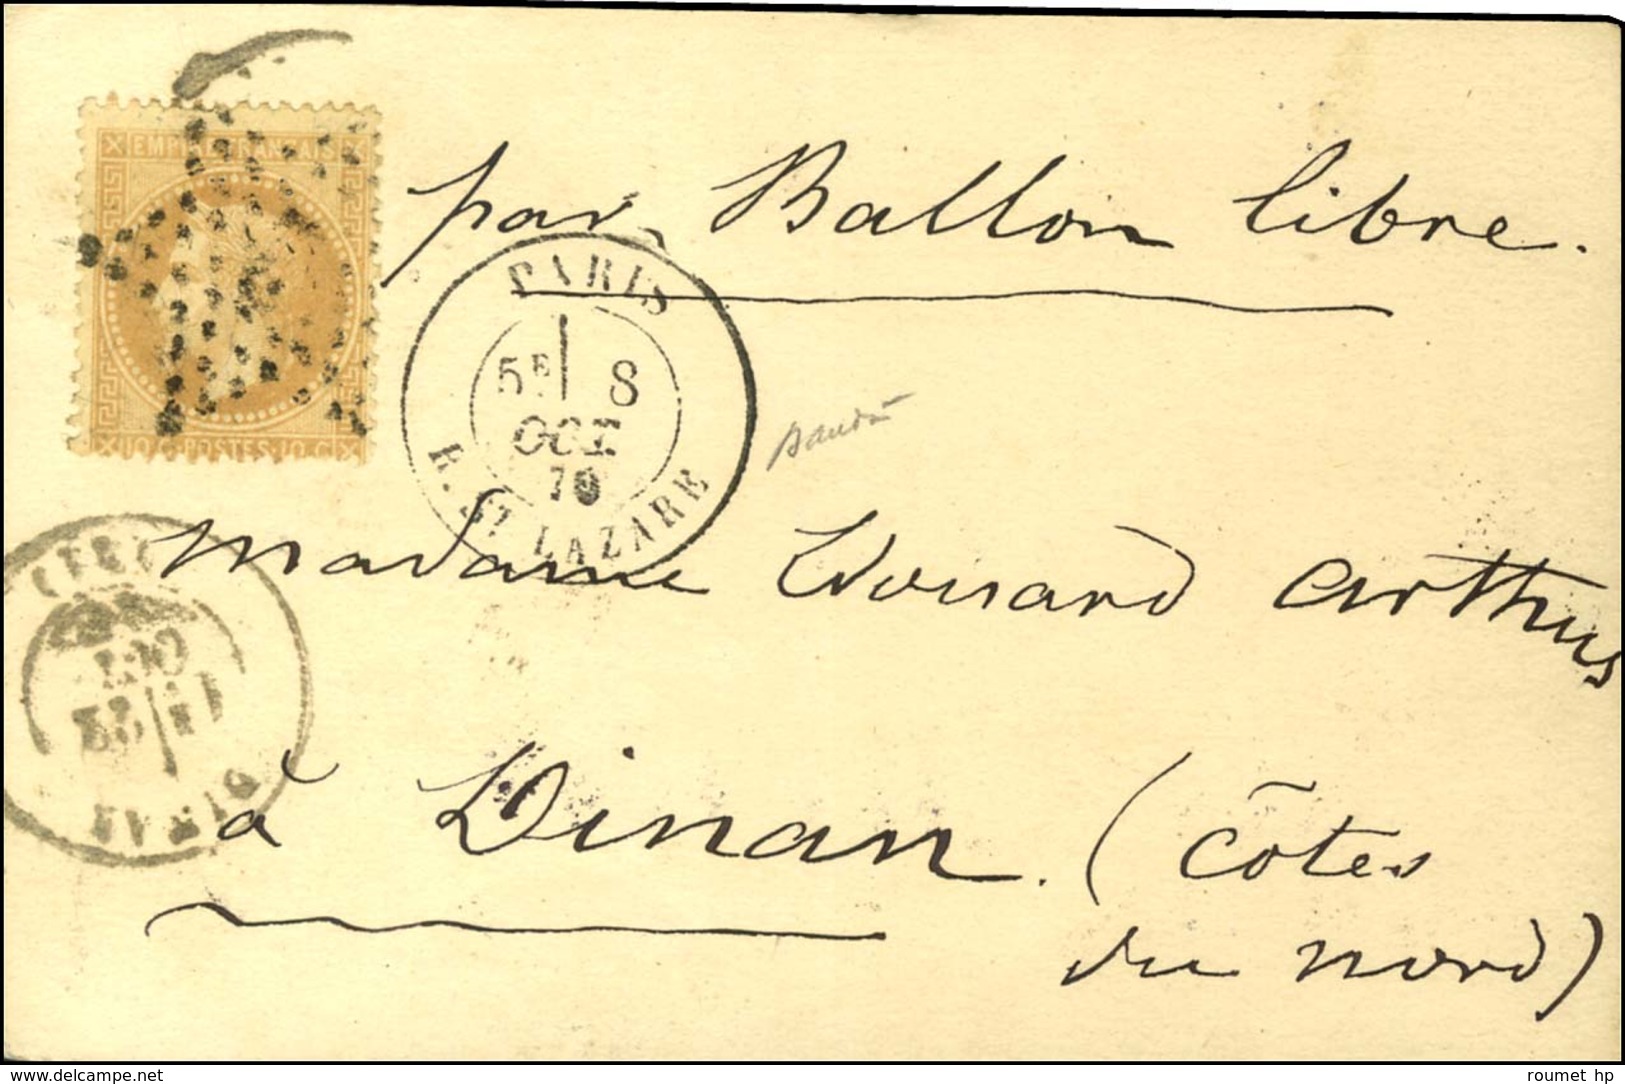 EMPIRE FRANÇAIS
10 C POSTES 10 C
par Ballon libre.
PARIS
5E 8
OCT
70
R. ST LAZARE
Madame Edouard Arthus
OCT
22
DINAN
à Dinan. (Côtes
du nord)
www.delcampe.net
roumet hp